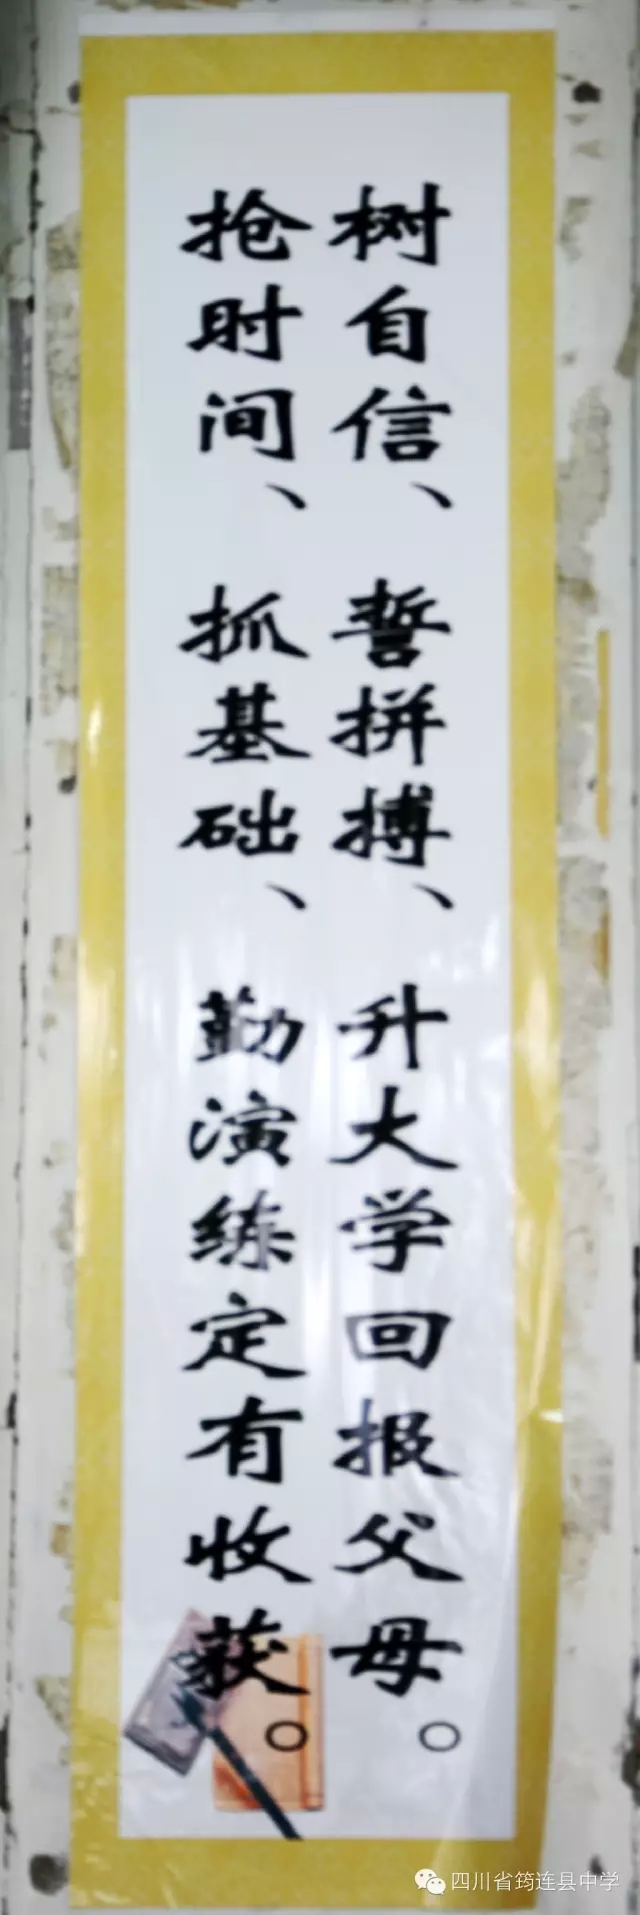 树自信、誓拼搏、升大学回报父母。
抢时间、抓基础、勤演练定有收获。
四川省筠连县中学